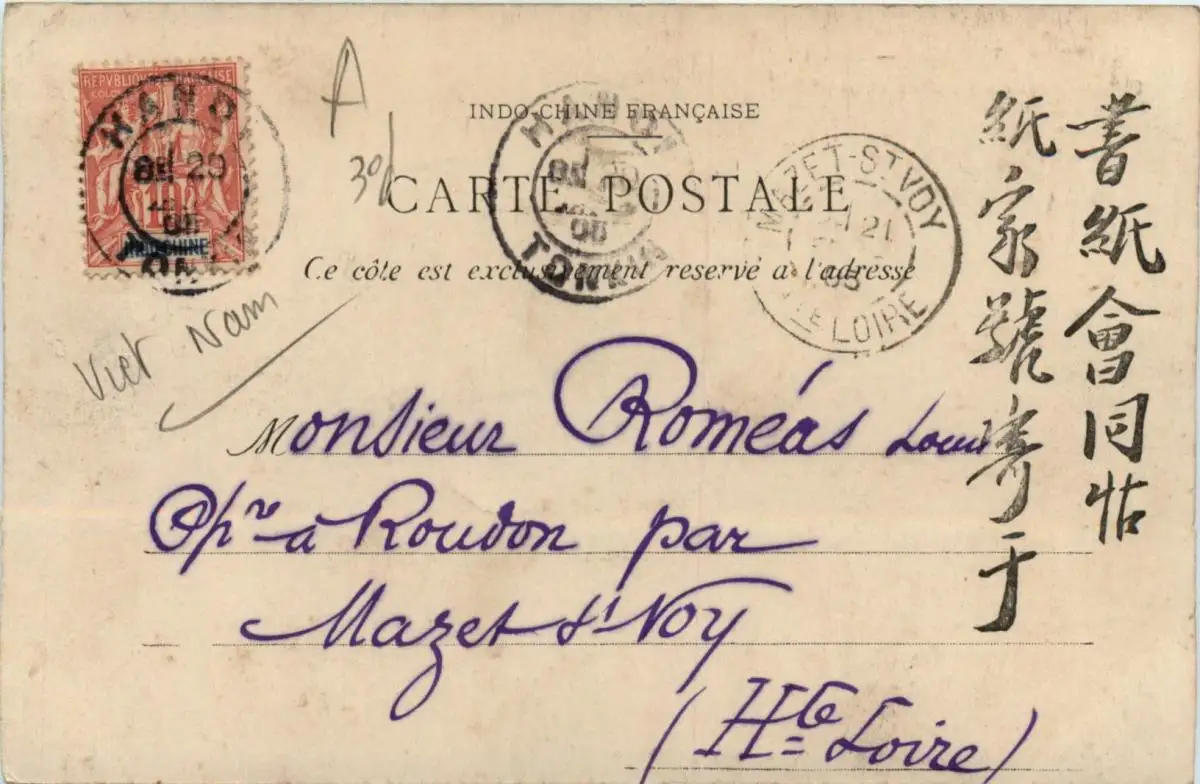 REPVBLIQUE FRANÇAISE
COLONIES
INDO-CHINE
HANOI
29
TONKIN
A
30f
Viet Nam
INDO-CHINE FRANÇAISE
CARTE POSTALE
Ce côte est exclusivement reservé a l'adresse
HANOI
TONKIN
MAZET-ST VOY
21
05
HTE LOIRE
書紙會同帖
紙家號寄于
Monsieur Roméas Louis
Ppre à Roudon par
Mazet St Voy
(Hte Loire)